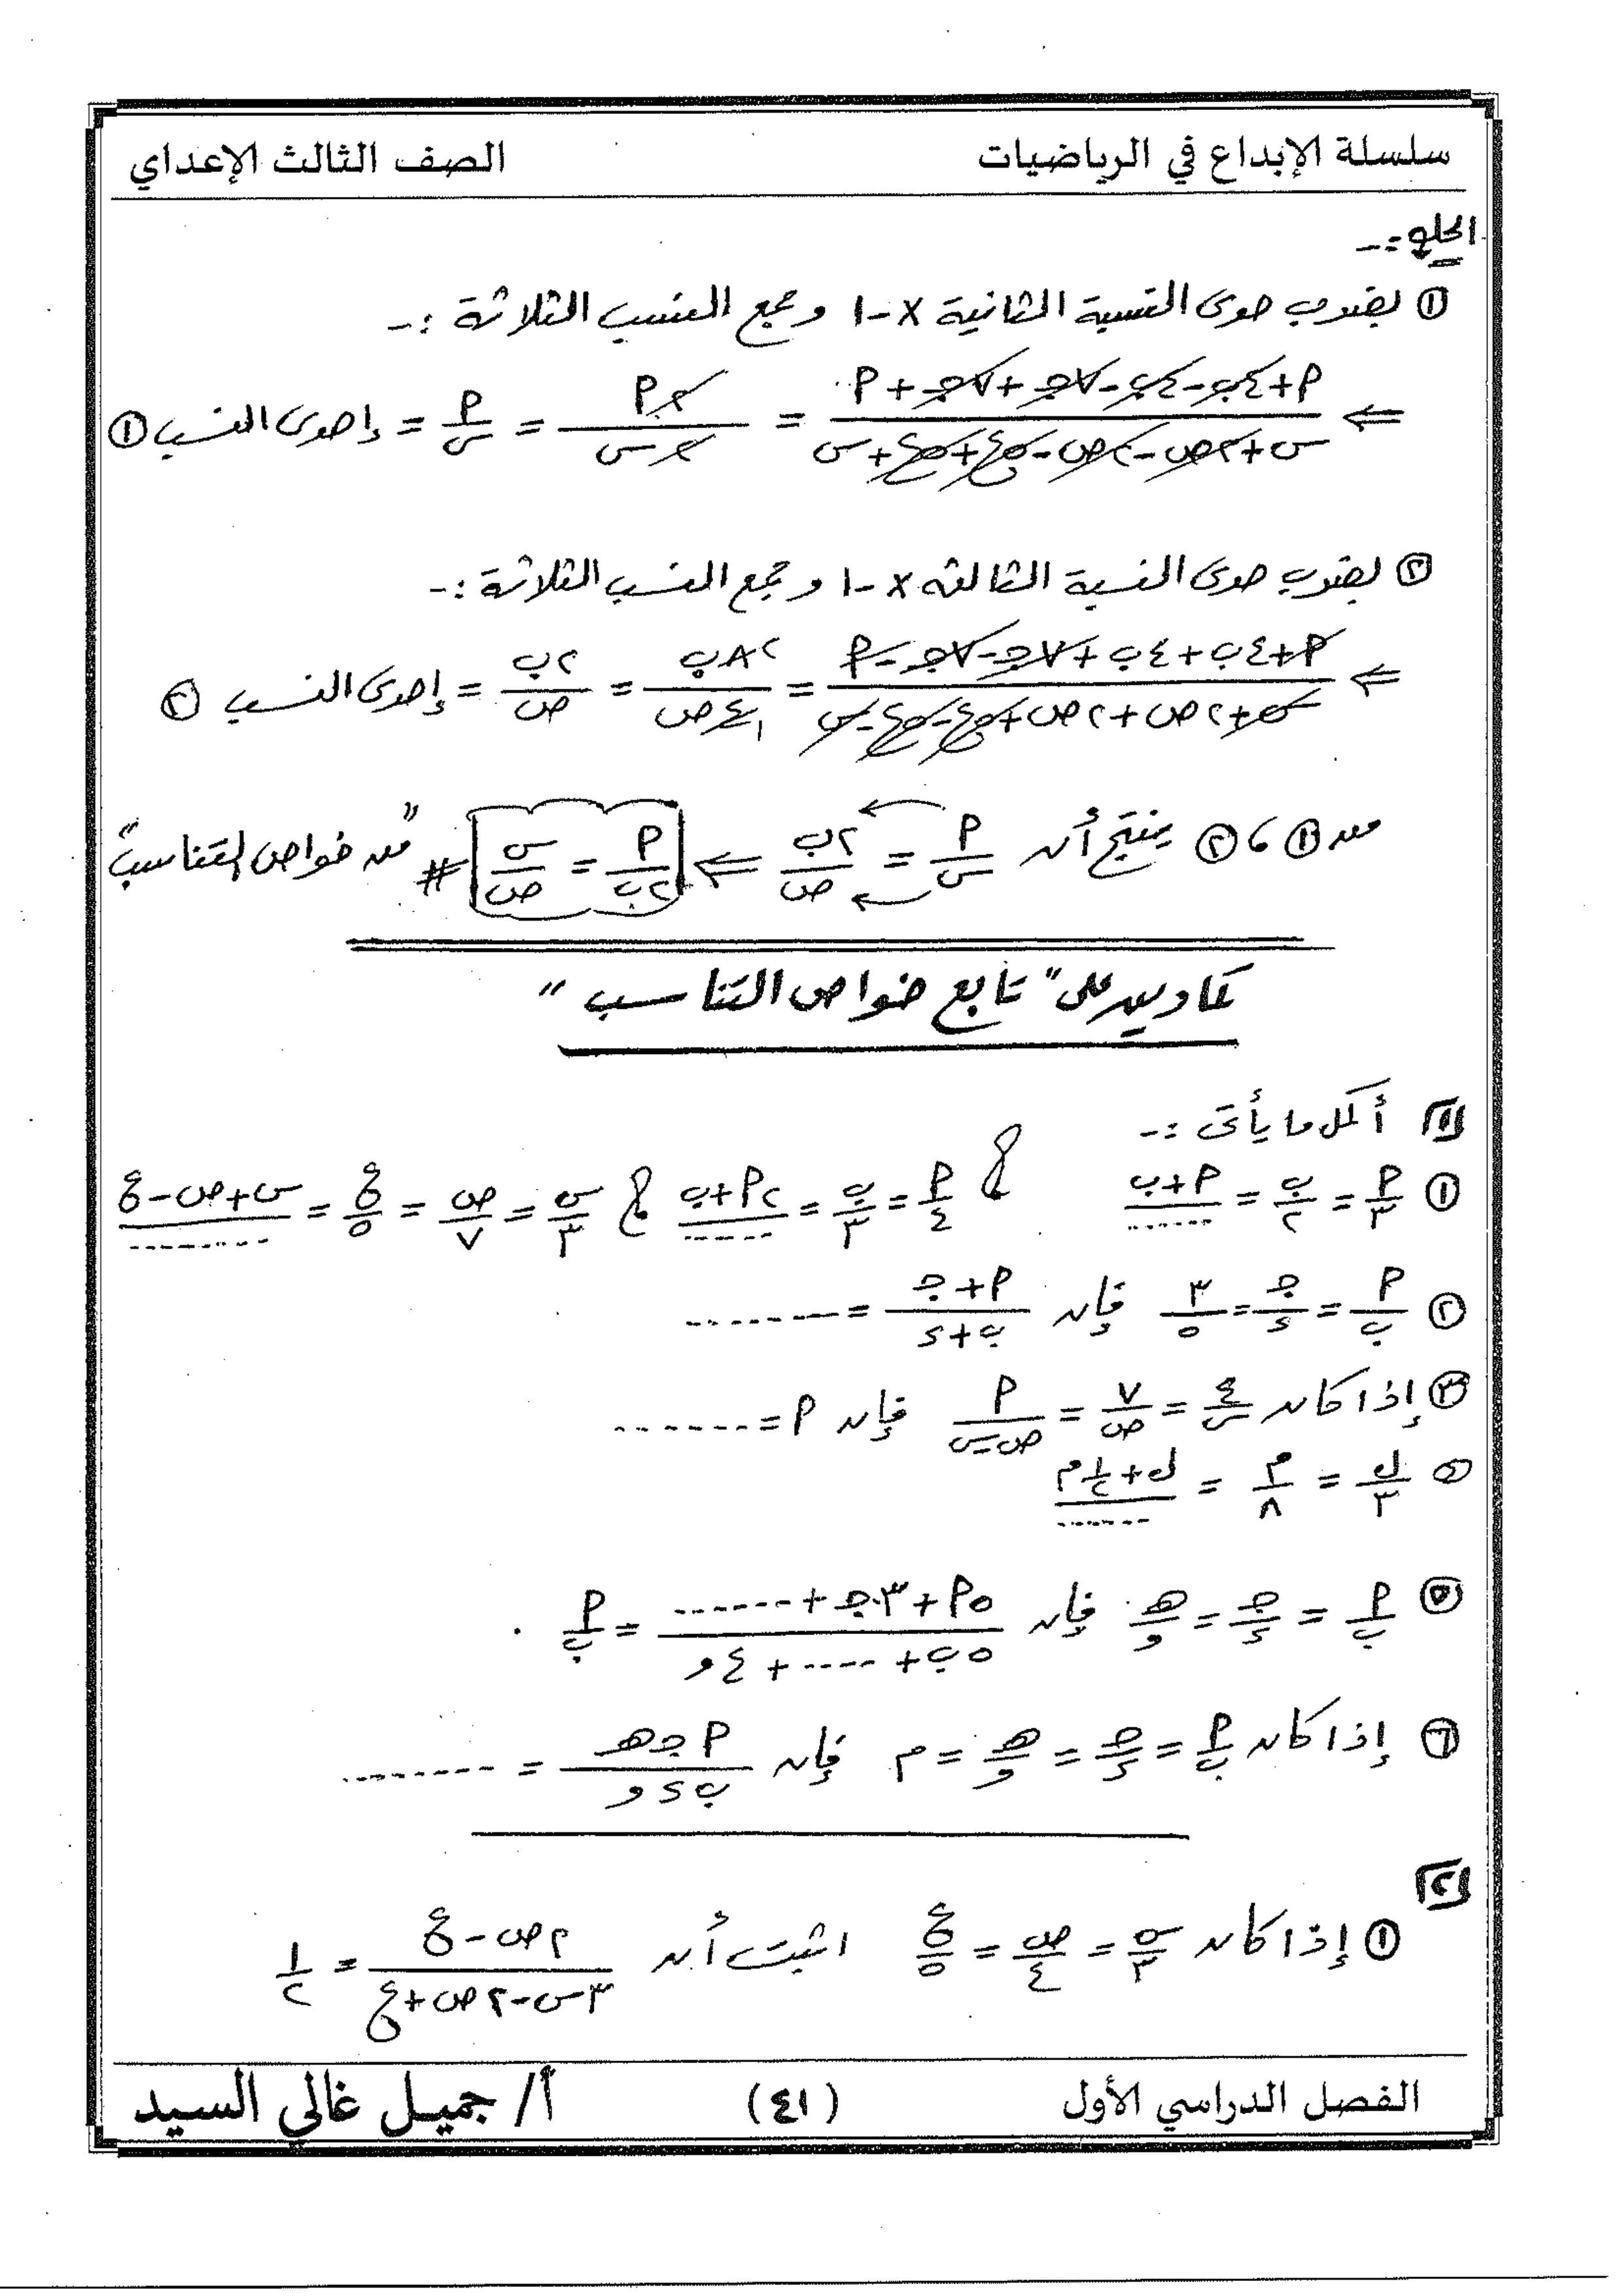 سلسلة الإبداع في الرياضيات الصف الثالث الإعداي
الحل :-
① بضرب حدى النسبة الثانية × -١ وجمع النسب الثلاثة :-
⇐ (٢+٤ب-٤ب-٧جـ+٧جـ+٢)/(س+٢ص-٢ص-ع+ع+س) = ٢أ/٢س = أ/س = إحدى النسب ①
② بضرب حدى النسبة الثالثة × -١ وجمع النسب الثلاثة :-
⇐ (أ+٤ب+٤ب+٧جـ-٧جـ-أ)/(س+٢ص+٢ص+ع-ع-س) = ٨ب/٤ص = ٢ب/ص = إحدى النسب ②
من ① ، ② ينتج أن أ/س = ٢ب/ص ⇐ أ/٢ب = س/ص # "من خواص التناسب"
تمارين على "تابع خواص التناسب"
[١] أكمل ما يأتى :-
① أ/٣ = ب/٢ = (أ+ب)/....... ، أ/٤ = ب/٣ = (٢أ+ب)/...... ، س/٣ = ص/٧ = ع/٥ = (س+ص-ع)/.........
② أ/ب = جـ/د = ٣/٥ فإن (أ+جـ)/(ب+د) = ........
③ إذا كان ٤/س = ٧/ص = أ/(ص-س) فإن أ = .......
④ ل/٣ = م/٨ = (ل+١/٢م)/.......
⑤ أ/ب = جـ/د = هـ/و فإن (٥أ+٣جـ+.......)/(٥ب+.....+٤و) = أ/ب .
⑥ إذا كان أ/ب = جـ/د = هـ/و = م فإن أ جـ هـ/ب د و = ........
[٢]
① إذا كان س/٣ = ص/٤ = ع/٥ اثبت أن (٢ص-ع)/(٣س-٢ص+ع) = ١/٢
الفصل الدراسي الأول (٤١) أ/ جميل غالي السيد